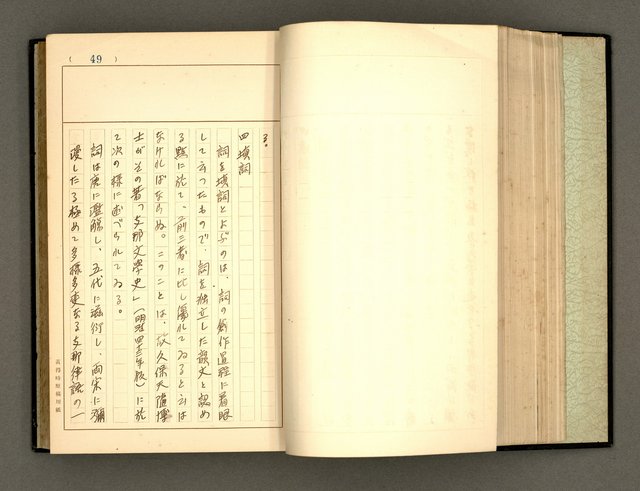 ( 49 )
る。
四 填詞
詞を填詞とよぶのは、詞の創作過程に着眼
して云つたもので、詞を独立した韻文と認め
る點に於て、前三者に比し優れてゐると云は
なければならぬ。このことは、故久保天隨博
士がその著「支那文學史」(明治四三年版)に於
て次の様に述べられてゐる。
詞は唐に濫觴し、五代に滋衍し、両宋に瀰
漫したる極めて多様多変なる支那律語の一
黃得時原稿用紙